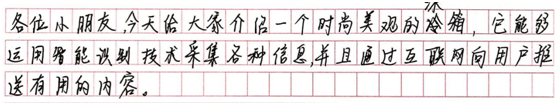 各位小朋友,今天给大家介绍一个时尚美观的冰箱，它能够
运用智能识别技术采集各种信息,并且通过互联网向用户推
送有用的内容。